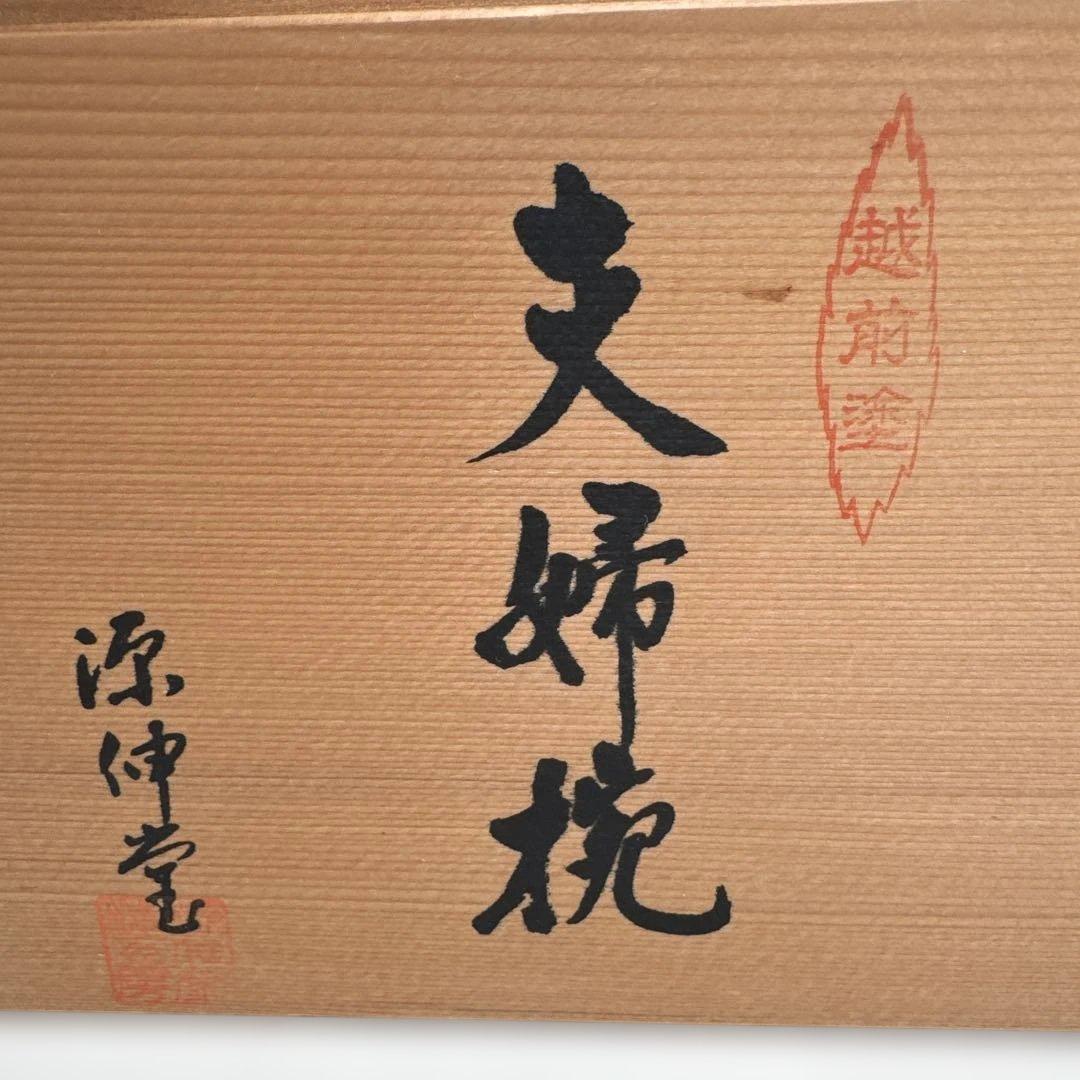 越前塗
夫婦椀
源伸堂